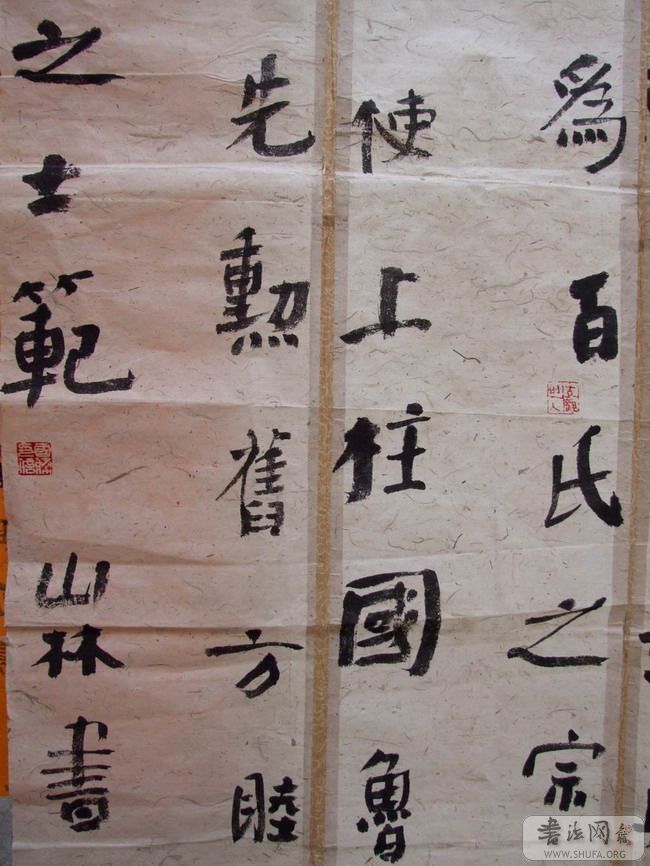 爲百氏之宗
使上柱國魯
先勲舊方睦
之士範
山林書
書法网
WWW.SHUFA.ORG